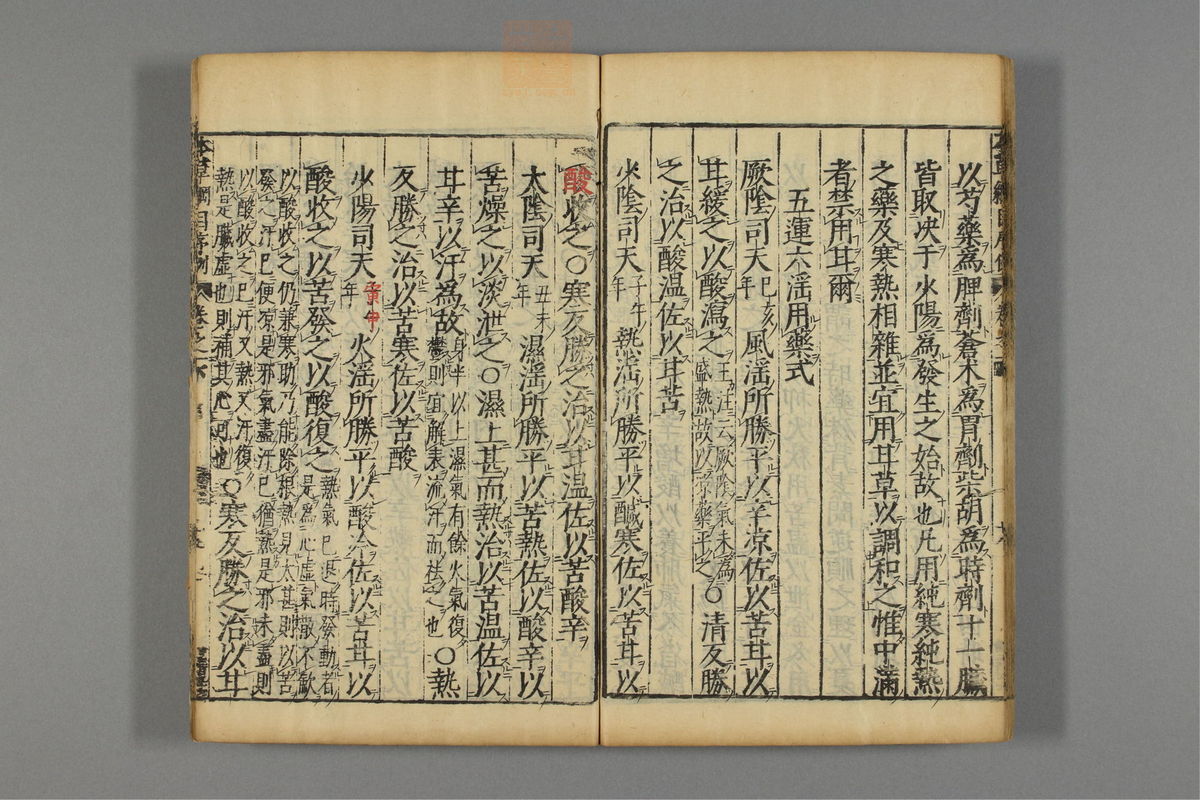 以芍藥為脾劑蒼朮為胃劑柴胡為時劑十一臟
皆取决于少陽為發生之始故也凡用純寒純熱
之藥及寒熱相雜並宜用甘草以調和之惟中滿
者禁用甘爾
五運六淫用藥式
厥陰司天巳亥年風淫所勝平以辛凉佐以苦甘以
甘緩之以酸瀉之王注云厥陰氣未為盛熱故以凉藥平之○清反勝
之治以酸温佐以甘苦
少陰司天子午年熱淫所勝平以鹹寒佐以苦甘以
酸收之○寒反勝之治以甘温佐以苦酸辛
太陰司天丑未年濕淫所勝平以苦熱佐以酸辛以
苦燥之以淡泄之○濕上甚而熱治以苦温佐以
甘辛以汗為故身半以上濕氣有餘火氣復鬱則宜解表流汗而祛之也○熱
反勝之治以苦寒佐以苦酸
少陽司天寅申年火淫所勝平以酸冷佐以苦甘以
酸收之以苦發之以酸復之熱氣已退時發動者是為心虛氣散不歛
以酸收之仍兼寒助乃能除根熱見太甚則以苦
發之汗已便凉是邪氣盡汗已猶熱是邪未盡則
以酸收之已汗又熱又汗復
熱是臟虛也則補其心可也○寒反勝之治以甘
本草綱目序例 卷之下